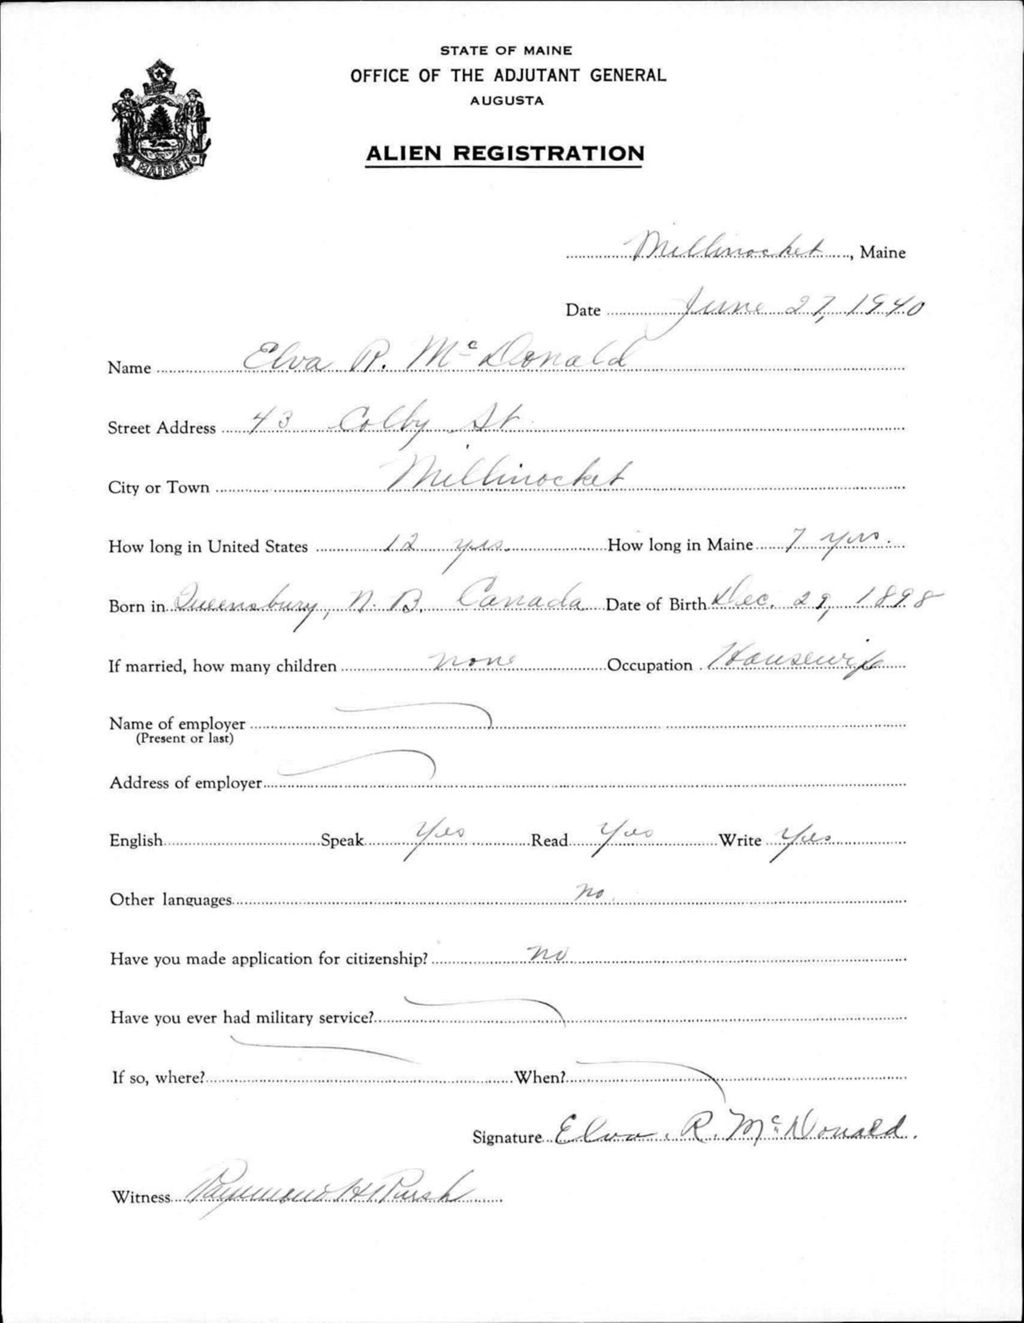 STATE OF MAINE
OFFICE OF THE ADJUTANT GENERAL
AUGUSTA
ALIEN REGISTRATION
MAINE
Millinocket, Maine
Date June 27, 1940
Name Elva R. McDonald
Street Address 43 Colby St
City or Town Millinocket
How long in United States 12 yrs. How long in Maine 7 yrs.
Born in Queensbury, N. B. Canada Date of Birth Dec. 29, 1898
If married, how many children none Occupation Housewife
Name of employer
(Present or last)
Address of employer
English Speak Yes Read Yes Write Yes
Other languages no
Have you made application for citizenship? no
Have you ever had military service?
If so, where? When?
Signature Elva. R. McDonald.
Witness Raymond H Rush